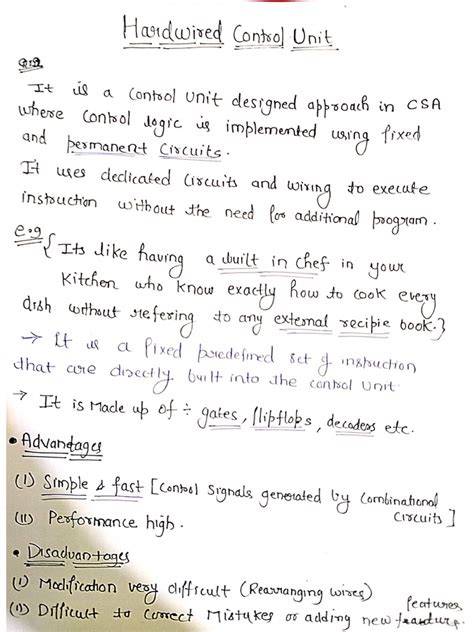 Hardwired Control Unit
It is a control unit designed approach in CSA
where control logic is implemented using fixed
and permanent Circuits.
It uses dedicated circuits and wiring to execute
instruction without the need for additional program.
e.g { Its like having a built in chef in your
Kitchen who know exactly how to cook every
dish without refering to any external recipie book.}
→ It is a fixed predefined set of instruction
that are directly built into the control unit.
→ It is Made up of ÷ gates, flipflops, decoders etc.
• Advantages
(I) Simple & fast [Control Signals generated by Combinational
Circuits]
(II) Performance high.
• Disadvantages
(I) Modification very difficult (Rearranging wires)
features
(II) Difficult to Correct Mistakes or adding new